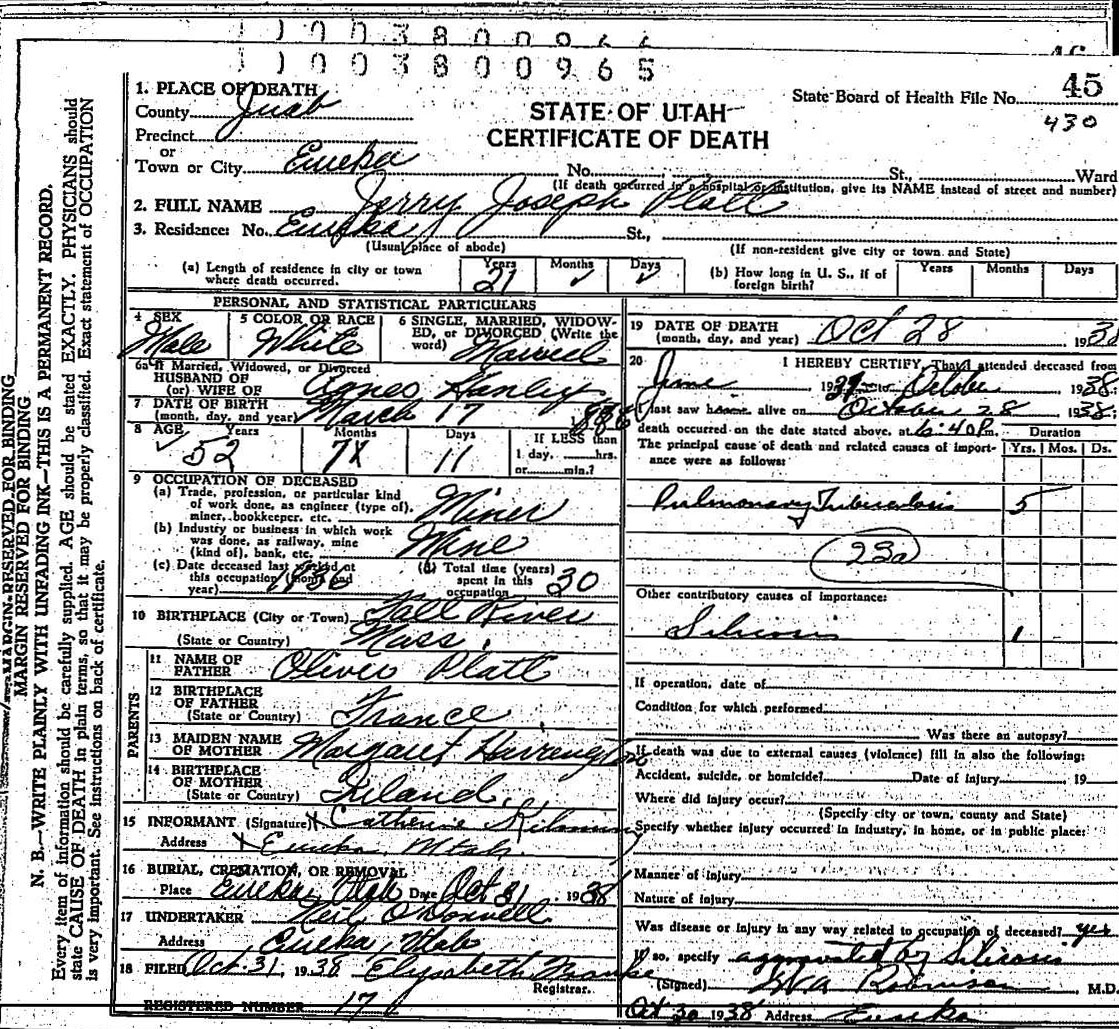 1 1 0 0 3 8 0 0 9 6 6
1 1 0 0 3 8 0 0 9 6 5
45
State Board of Health File No.
430
STATE OF UTAH
CERTIFICATE OF DEATH
1. PLACE OF DEATH
County Juab
Precinct
or
Town or City Eureka No. St., Ward
(If death occurred in a hospital or institution, give its NAME instead of street and number)
2. FULL NAME Jerry Joseph Platt
3. Residence: No. Eureka St.,
(Usual place of abode) (If non-resident give city or town and State)
(a) Length of residence in city or town where death occurred. Years 21 Months ✓ Days ✓
(b) How long in U. S., if of foreign birth? Years Months Days
PERSONAL AND STATISTICAL PARTICULARS
4 SEX Male
5 COLOR OR RACE White
6 SINGLE, MARRIED, WIDOW-
ED, or DIVORCED (Write the
word) Married
6a If Married, Widowed, or Divorced
HUSBAND OF
(or) WIFE OF Agnes Hanley
7 DATE OF BIRTH
(month, day, and year) March 17 1886
8 AGE Years Months Days If LESS than
✓ 52 7 11 1 day, hrs.
or min.?
9 OCCUPATION OF DECEASED
(a) Trade, profession, or particular kind
of work done, as engineer (type of),
miner, bookkeeper, etc. Miner
(b) Industry or business in which work
was done, as railway, mine
(kind of), bank, etc. Mine
(c) Date deceased last worked at
this occupation (month and
year) 1936
(d) Total time (years)
spent in this
occupation 30
10 BIRTHPLACE (City or Town) Fall River
(State or Country) Mass.
PARENTS
11 NAME OF
FATHER Oliver Platt
12 BIRTHPLACE
OF FATHER
(State or Country) France
13 MAIDEN NAME
OF MOTHER Margaret Harrington
14 BIRTHPLACE
OF MOTHER
(State or Country) Ireland.
15 INFORMANT (Signature) x Catherine
Address x Eureka Utah.
16 BURIAL, CREMATION, OR REMOVAL
Place Eureka, Utah Date Oct 31 1938
17 UNDERTAKER Neil O'Donnell
Address Eureka, Utah
18 FILED Oct. 31, 1938 Elysabeth
Registrar.
REGISTERED NUMBER 17
19 DATE OF DEATH
(month, day, and year) Oct 28 193
20 I HEREBY CERTIFY, That I attended deceased from
June 19 to October 1938
I last saw h alive on October 28 1938
death occurred on the date stated above, at 6:40 P m.
Duration
The principal cause of death and related causes of import-
ance were as follows: Yrs. Mos. Ds.
Pulmonary Tuberculosis 5
23a
Other contributory causes of importance:
Silicosis 1
If operation, date of
Condition for which performed
Was there an autopsy?
If death was due to external causes (violence) fill in also the following:
Accident, suicide, or homicide? Date of injury 19
Where did injury occur?
(Specify city or town, county and State)
Specify whether injury occurred in industry, in home, or in public place:
Manner of injury
Nature of injury
Was disease or injury in any way related to occupation of deceased? yes
If so, specify aggravated by Silicosis
(Signed) Robinson M.D.
Oct 30 1938 Address Eureka
MARGIN RESERVED FOR BINDING
MARGIN RESERVED FOR BINDING
N. B.—WRITE PLAINLY WITH UNFADING INK—THIS IS A PERMANENT RECORD.
Every item of information should be carefully supplied. AGE should be stated EXACTLY. PHYSICIANS should
state CAUSE OF DEATH in plain terms, so that it may be properly classified. Exact statement of OCCUPATION
is very important. See instructions on back of certificate.